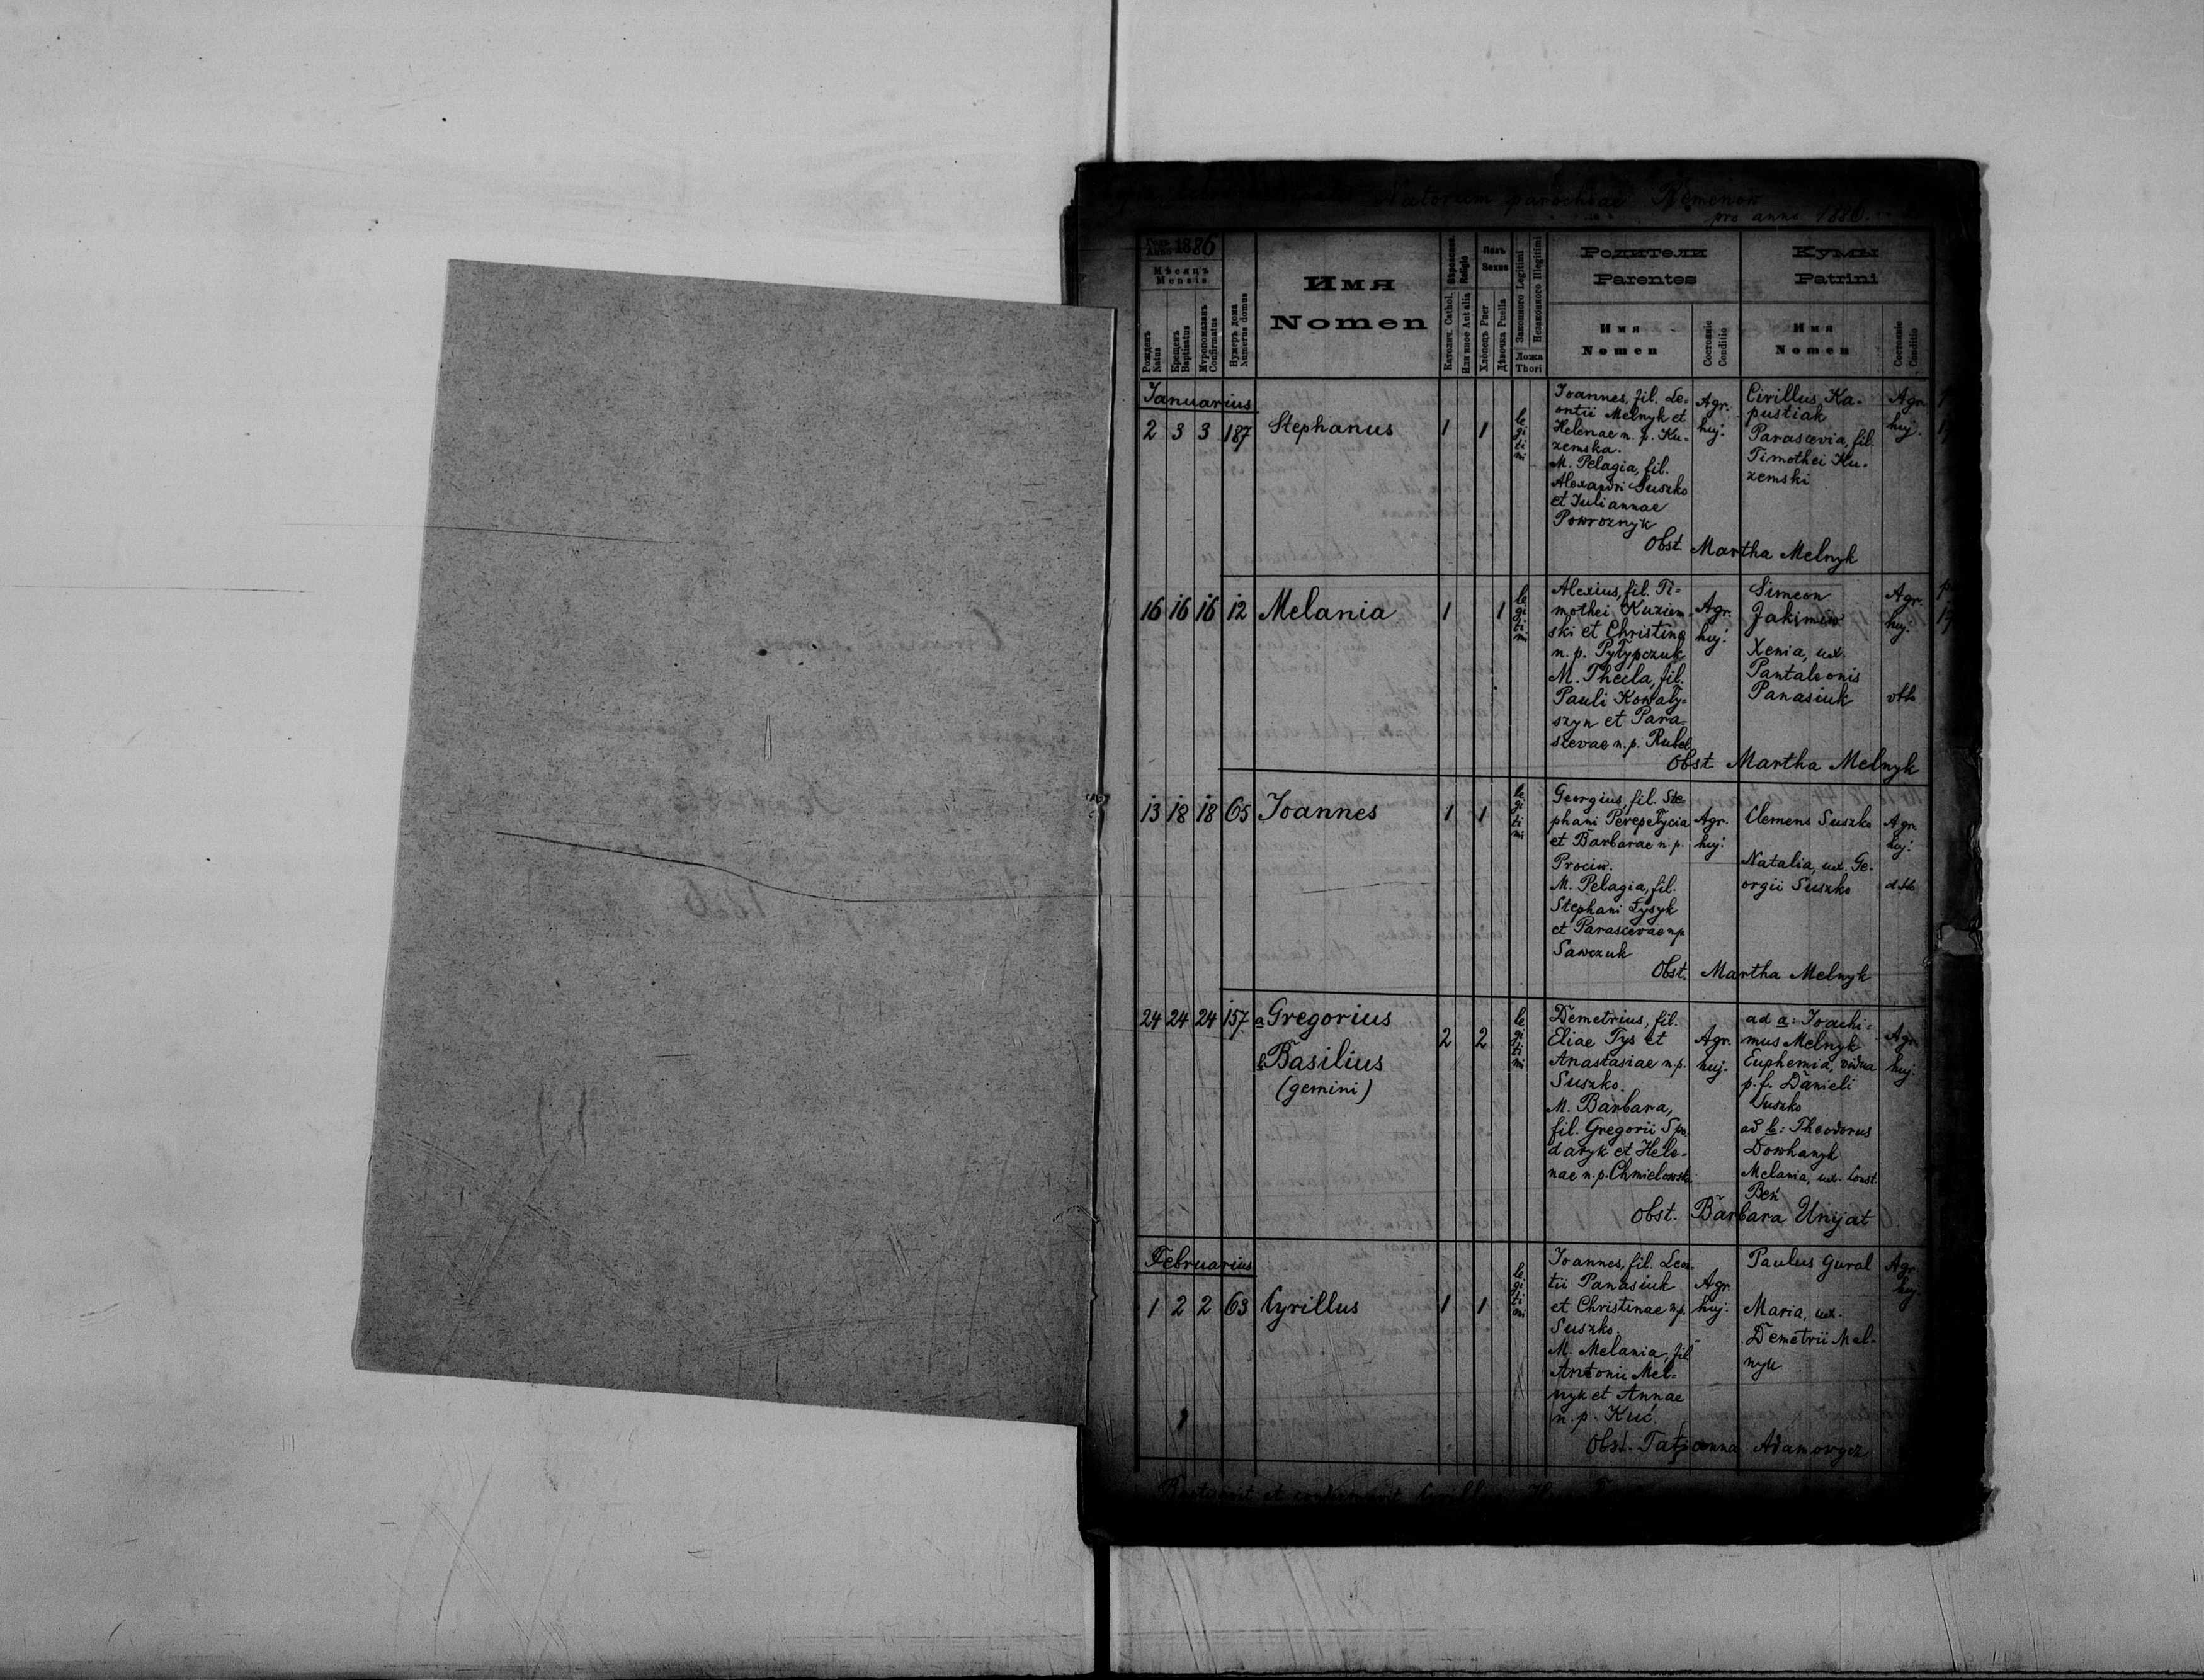 Natorum parochiae Remenów
pro anno 1886.
Годъ Anno 1886
Мѣсяцъ
Mensis
Рожденъ Natus
Крещенъ Baptisatus
Мѵропомазанъ Confirmatus
Нумеръ дома Numerus domus
Имя
Nomen
Вѣроисповѣд. Religio
Католич. Cathol.
Или иное Aut alia
Полъ
Sexus
Хлопецъ Puer
Дѣвочка Puella
Законного Legitimi
Незаконного Illegitimi
Ложа
Thori
Родители
Parentes
Имя
Nomen
Состояніе
Conditio
Кумы
Patrini
Имя
Nomen
Состояніе
Conditio
Januarius
2 3 3 187 Stephanus 1 1 legitimi
Joannes, fil. Le-
ontii Melnyk et
Helenae n. p. Ku-
zemska.
M. Pelagia, fil.
Alexandri Suszko
et Juliannae
Powroznyk
Agr.
huj.
Cirillus Ka-
pustiak
Parascevia, fil.
Timothei Ku-
zemski
Agr.
huj.
Obst. Martha Melnyk
16 16 16 12 Melania 1 1 legitimi
Alexius, fil. Ti-
mothei Kuziem-
ski et Christina
n. p. Pylypczuk
M. Thecla, fil.
Pauli Kowaly-
szyn et Para-
scevae n. p. Rubel
Agr.
huj.
Simeon
Jakimiw
Xenia, ux.
Pantaleonis
Panasiuk
Agr.
huj.
Obst Martha Melnyk
13 18 18 65 Joannes 1 1 legitimi
Georgius, fil. Ste-
phani Perepelycia
et Barbarae n. p.
Prociw.
M. Pelagia, fil.
Stephani Łysyk
et Parascevae n p
Sawczuk
Agr.
huj.
Clemens Suszko
Natalia, ux. Ge-
orgii Suszko
Agr.
huj.
Obst. Martha Melnyk
24 24 24 157 a Gregorius
b Basilius
(gemini)
2 2 legitimi
Demetrius, fil.
Eliae Tys et
Anastasiae n. p.
Suszko.
M. Barbara,
fil. Gregorii Spo-
daryk et Hele-
nae n. p. Chmielowska
Agr.
huj.
ad a: Joachi-
mus Melnyk
Euphemia, vidua
p. f. Danieli
Suszko
ad b: Theodorus
Dowhanyk
Melania, ux. Const.
Beń
Agr.
huj.
Obst. Barbara Unijat
Februarius
1 2 2 63 Cyrillus 1 1 legitimi
Joannes, fil. Leon-
tii Panasiuk
et Christinae n. p.
Suszko.
M. Melania, fil
Antonii Mel-
nyk et Annae
n. p. Kuć.
Agr.
huj.
Paulus Gural
Maria, ux.
Demetrii Mel-
nyk
Agr.
huj.
Obst. Tatjanna Adamowycz